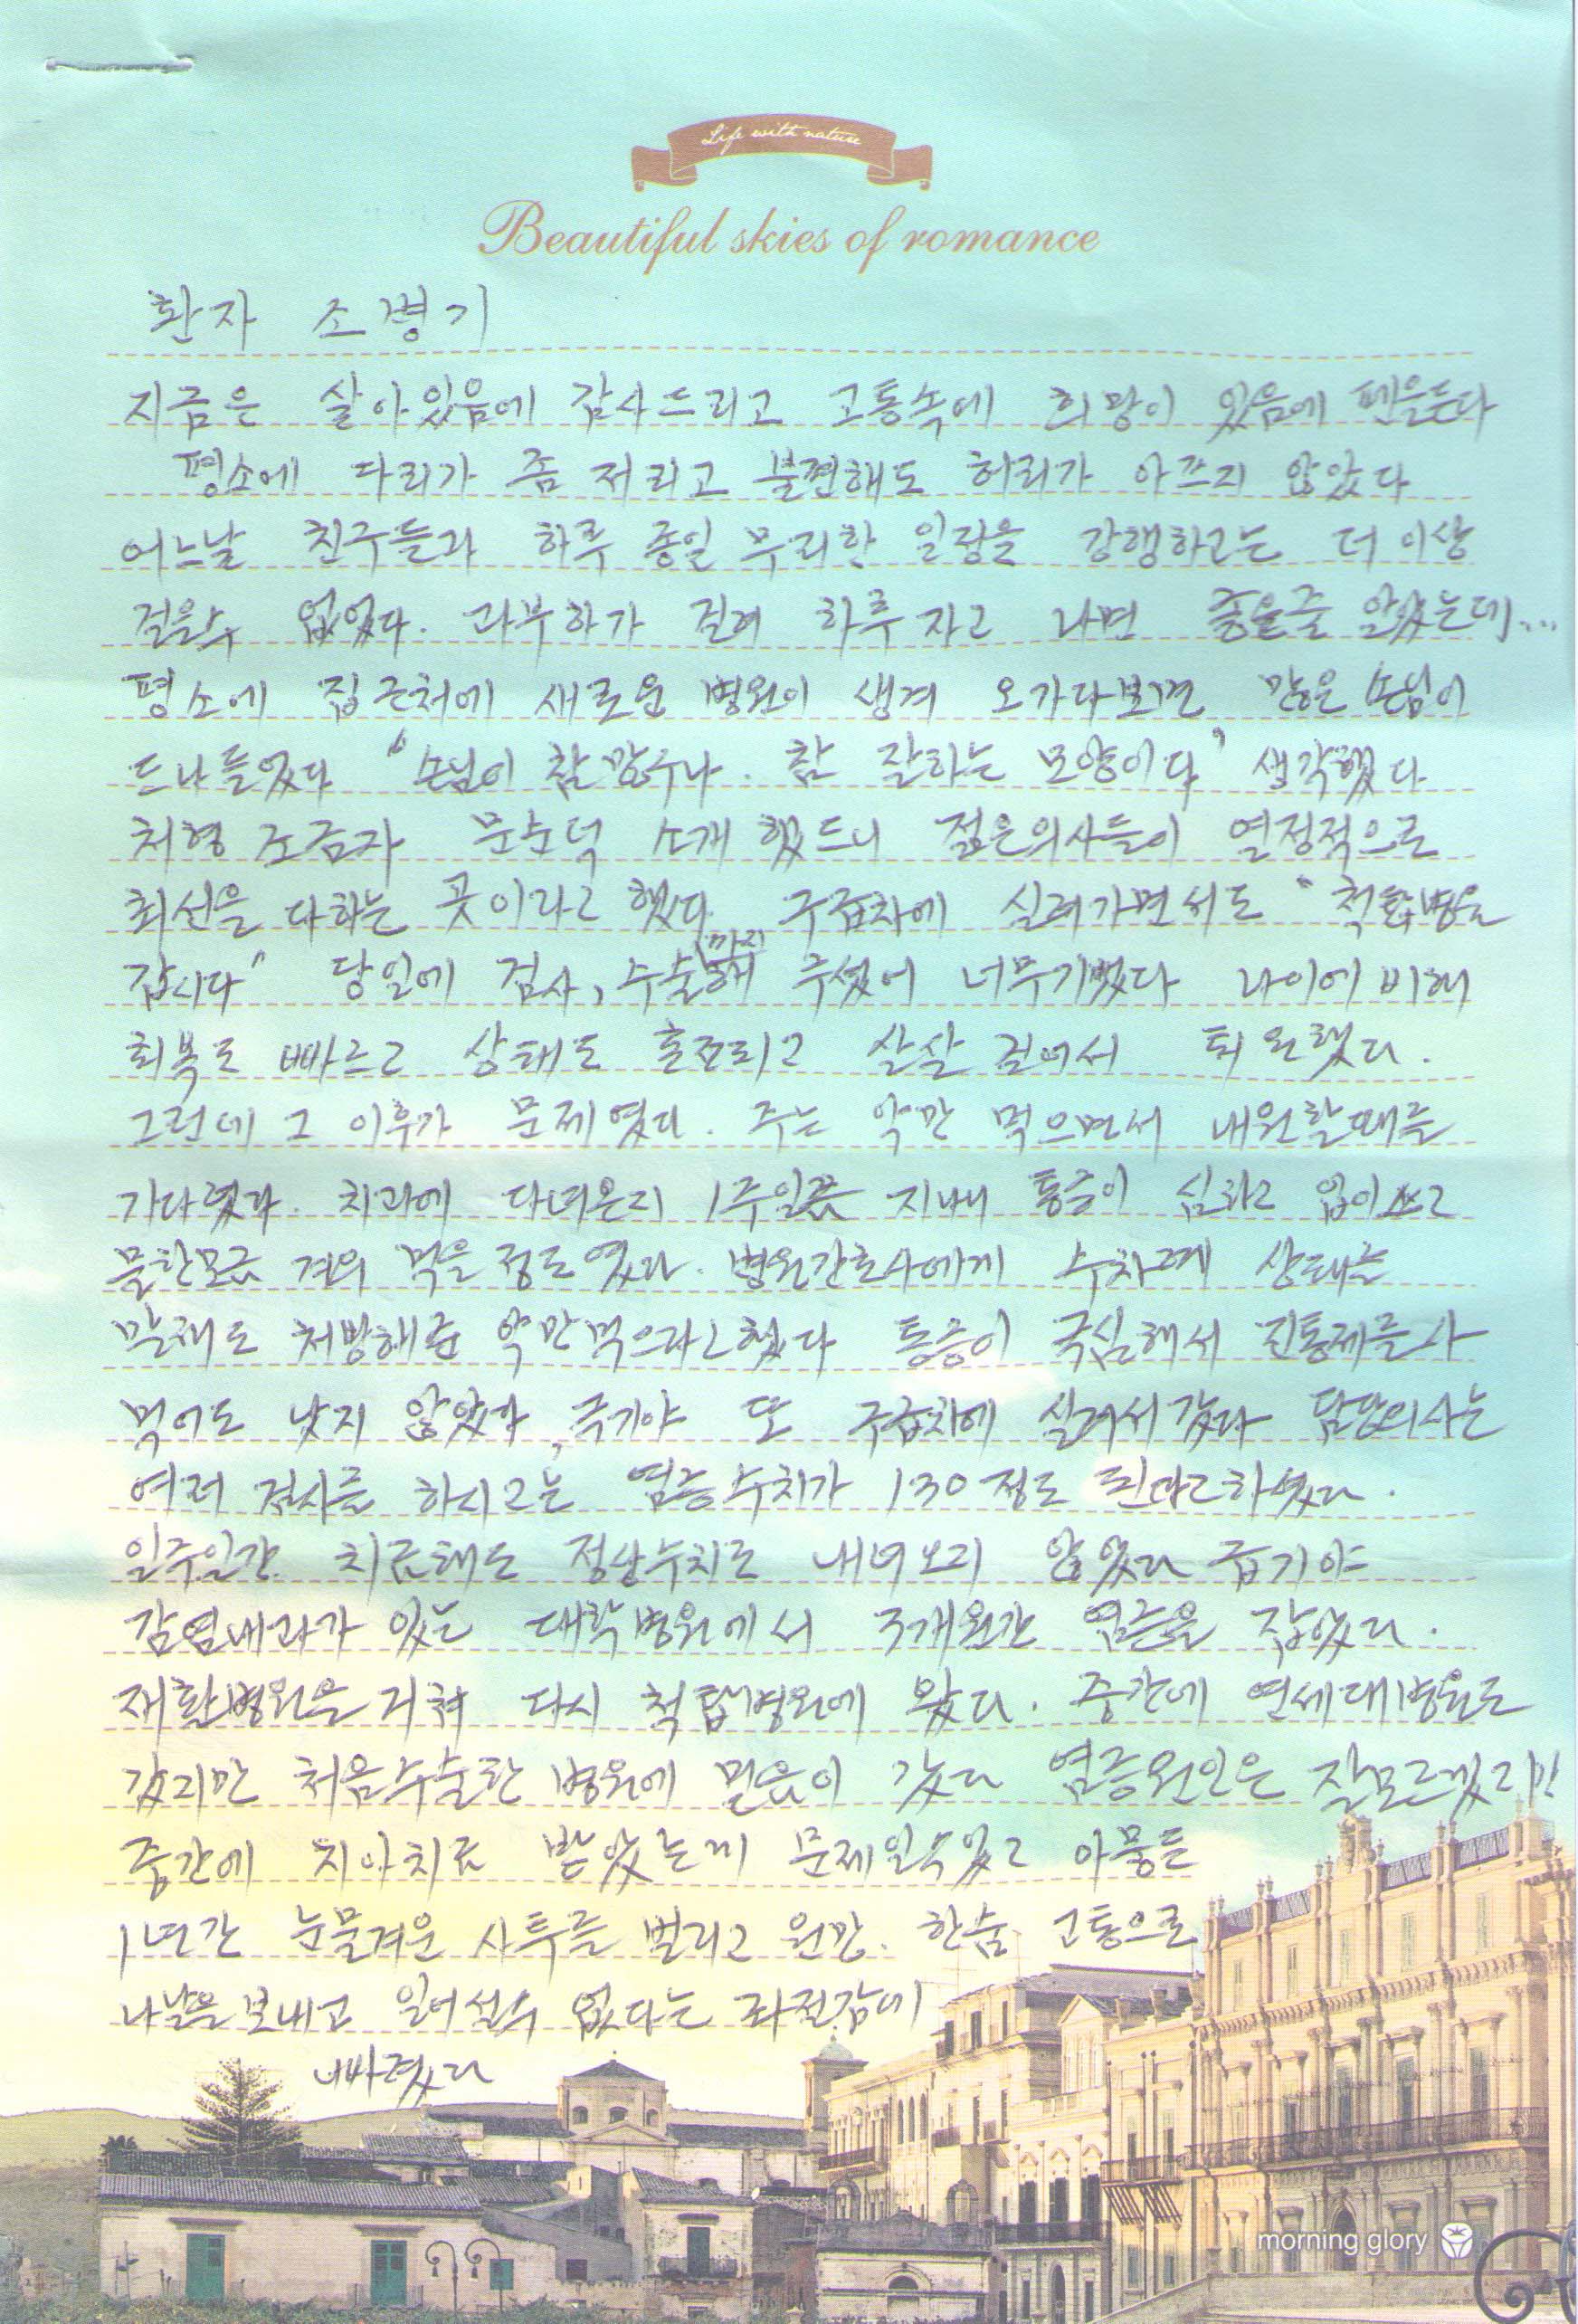 Life with nature
Beautiful skies of romance
환자 조병기
지금은 살아있음에 감사드리고 고통속에 희망이 있음에 펜을든다
평소에 다리가 좀 저리고 불편해도 허리가 아프지 않았다
어느날 친구들과 하루 종일 무리한 일정을 강행하고는 더 이상
걸을수 없었다. 과부하가 걸려 하루 자고 나면 좋을줄 알았는데...
평소에 집근처에 새로운 병원이 생겨 오가다보면 많은 손님이
드나들었다 "손님이 참 많구나. 참 잘하는 모양이다" 생각했다
처형 조금자 문순덕 소개 했드니 젊은의사들이 열정적으로
최선을 다하는 곳이라고 했다. 구급차에 실려가면서도 "척탑병원
갑시다" 당일에 검사, 수술까지해 주셨어 너무기뻤다 나이에 비해
회복도 빠르고 상태도 호전되고 살살 걸어서 퇴원했다.
그런데 그 이후가 문제였다. 주는 약만 먹으면서 내원할때를
기다렸다. 치과에 다녀온지 1주일쯤 지내니 통증이 심하고
물한모금 겨우 먹을 정도였다. 병원간호사에게 수차례 상태를
말해도 처방해준 약만먹으라고했다 통증이 극심해서 진통제를 사
먹어도 낫지 않았다, 급기야 또 구급차에 실려서갔다 담당의사는
여러 검사를 하시고는 염증수치가 130정도 된다고하셨다.
일주일간 치료해도 정상수치로 내려오지 않았다 급기야
감염내과가 있는 대학병원에서 3개월간 염증을 잡았다.
재활병원을 거쳐 다시 척탑병원에 왔다. 중간에 연세대병원도
갔지만 처음수술한 병원에 믿음이 갔다 염증원인은 잘모르겠지만
중간에 치아치료 받았는게 문제일수있고 아뭏든
1년간 눈물겨운 사투를 벌리고 원망. 한숨. 고통으로
나날을보내고 일어설수 없다는 좌절감에
빠졌다
morning glory